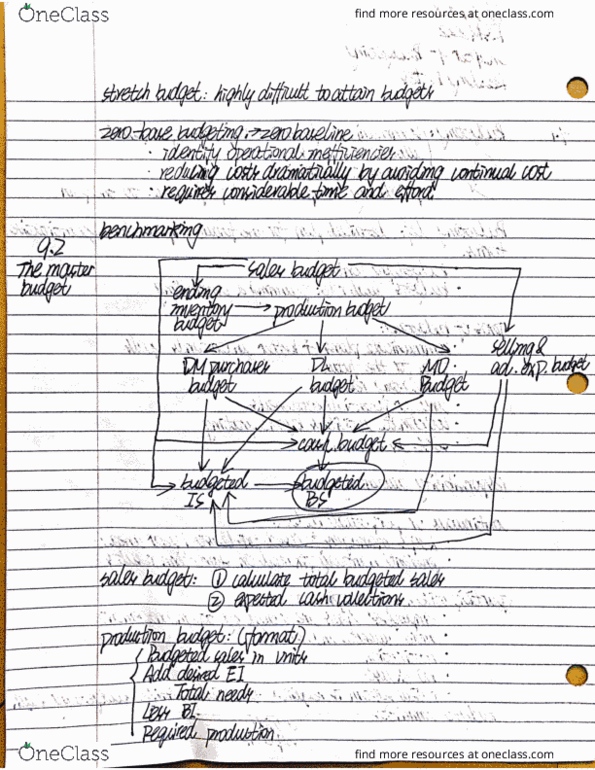 OneClass
find more resources at oneclass.com
stretch budget: highly difficult to attain budgets
zero-base budgeting → zero baseline
· identify operational inefficiencies
· reducing costs dramatically by avoiding continual cost
· requires considerable time and effort
benchmarking
9.2
The master
budget
sales budget
ending
inventory
budget
production budget
DM purchases
budget
DL
budget
MO
Budget
selling &
ad. exp. budget
cash budget
budgeted
IS
budgeted
BS
sales budget: ① calculate total budgeted sales
② expected cash collections
production budget: (format)
Budgeted sales in units
Add desired EI
Total needs
Less BI
Required production
OneClass
find more resources at oneclass.com